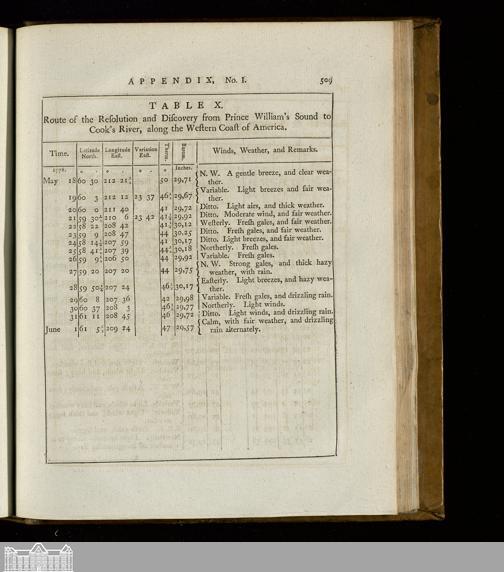 APPENDIX, No. I. 509
TABLE X.
Route of the Reſolution and Diſcovery from Prince William's Sound to
Cook's River, along the Weſtern Coaſt of America.
Time. Latitude North. Longitude Eaſt. Variation Eaſt. Therm. Barom. Winds, Weather, and Remarks.
1778. Inches.
May 18 60 30 212 21½ 50 29,71 N. W. A gentle breeze, and clear wea-
ther.
19 60 3 212 12 23 37 46½ 29,67 Variable. Light breezes and fair wea-
ther.
20 60 0 211 40 41 29,72 Ditto. Light airs, and thick weather.
21 59 30½ 210 6 23 42 41½ 29,92 Ditto. Moderate wind, and fair weather.
22 58 22 208 42 41½ 30,12 Weſterly. Freſh gales, and fair weather.
23 59 9 208 47 44 30,25 Ditto. Freſh gales, and fair weather.
24 58 14½ 207 59 41 30,17 Ditto. Light breezes, and fair weather.
25 58 41½ 207 39 44½ 30,18 Northerly. Freſh gales.
26 59 9½ 206 50 44 29,92 Variable. Freſh gales.
27 59 20 207 20 44 29,75 N. W. Strong gales, and thick hazy
weather, with rain.
28 59 50½ 207 24 46½ 30,17 Eaſterly. Light breezes, and hazy wea-
ther.
29 60 8 207 36 42 29,98 Variable. Freſh gales, and drizzling rain.
30 60 37 208 3 46½ 29,77 Northerly. Light winds.
31 61 11 208 45 46 29,72 Ditto. Light winds, and drizzling rain.
June 1 61 5½ 209 24 47 29,57 Calm, with fair weather, and drizzling
rain alternately.